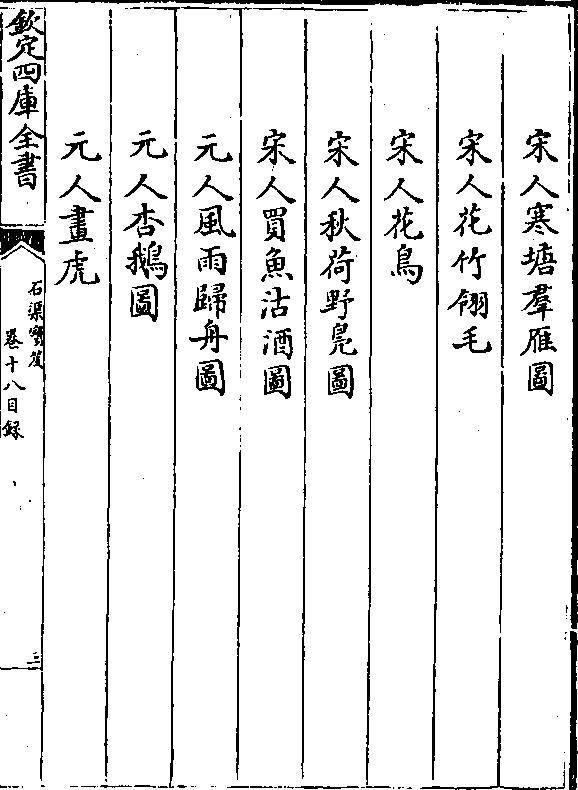 宋人寒塘羣雁圖
宋人花竹翎毛
宋人花鳥
宋人秋荷野鳧圖
宋人買魚沽酒圖
元人風雨歸舟圖
元人杏鵝圖
元人畫虎
欽定四庫全書
石渠寶笈
卷十八目錄
三